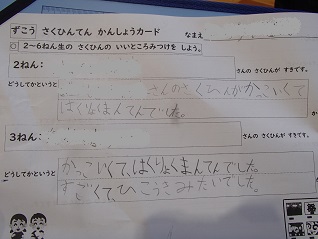 ずこう さくひんてん かんしょうカード なまえ
○ 2~6ねん生の さくひんの いいところみつけを しよう。
2ねん:
さんの さくひんが すきです。
どうしてかというと
さんのさくひんがかっこいくて
はくりょくまんてんでした。
3ねん:
さんの さくひんが すきです。
どうしてかというと
かっこいくて、はくりょくまんてんでした。
すごくて、ひこうきみたいでした。